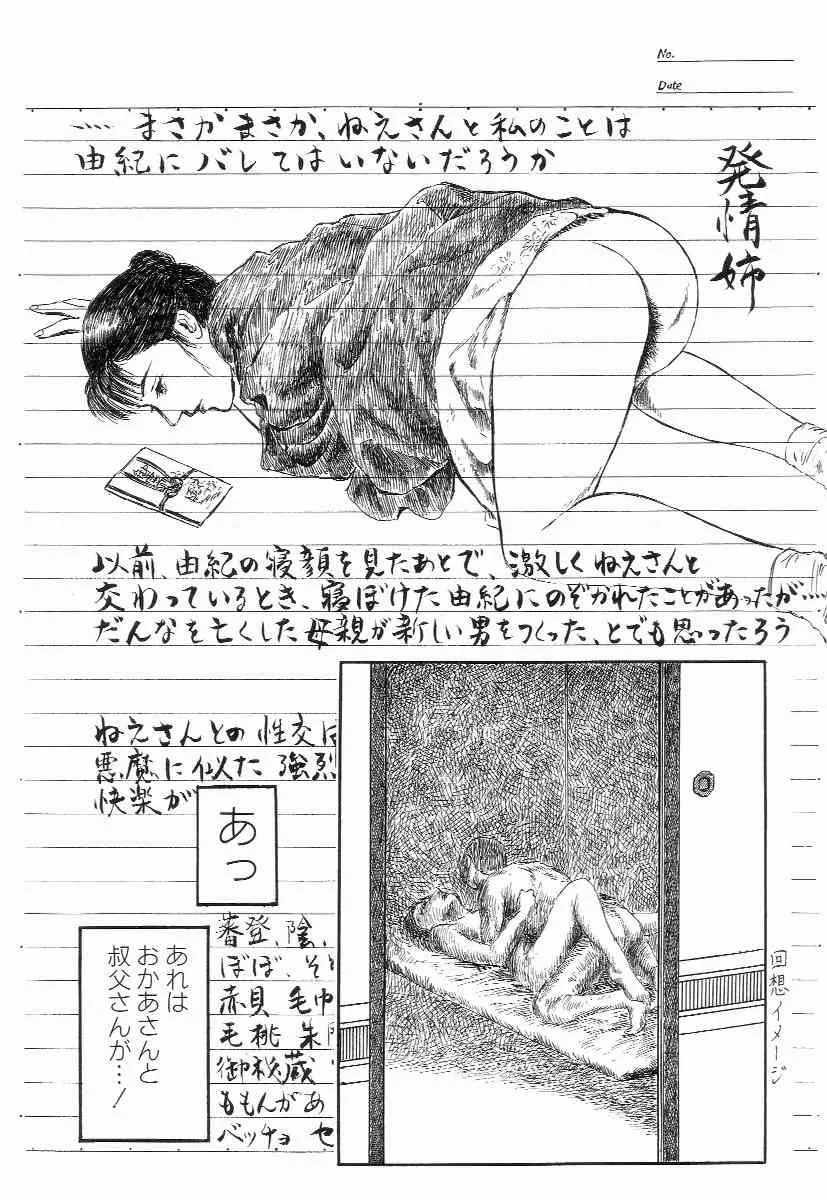 No.
Date
発情姉
…… まさかまさか、ねえさんと私のことは
由紀にバレてはいないだろうか
以前、由紀の寝顔を見たあとで、激しくねえさんと
交わっているとき、寝ぼけた由紀にのぞかれたことがあったが……
だんなを亡くした母親が新しい男をつくった、とでも思ったろう
ねえさんとの性交は
悪魔に似た 強烈
快楽が
あっ
回想イメージ
蕃登、陰、
ぼぼ、そ
赤貝 毛巾
毛桃 朱門
御秘蔵
ももんがあ
ベッチョ セ
あれは
おかあさんと
叔父さんが…！